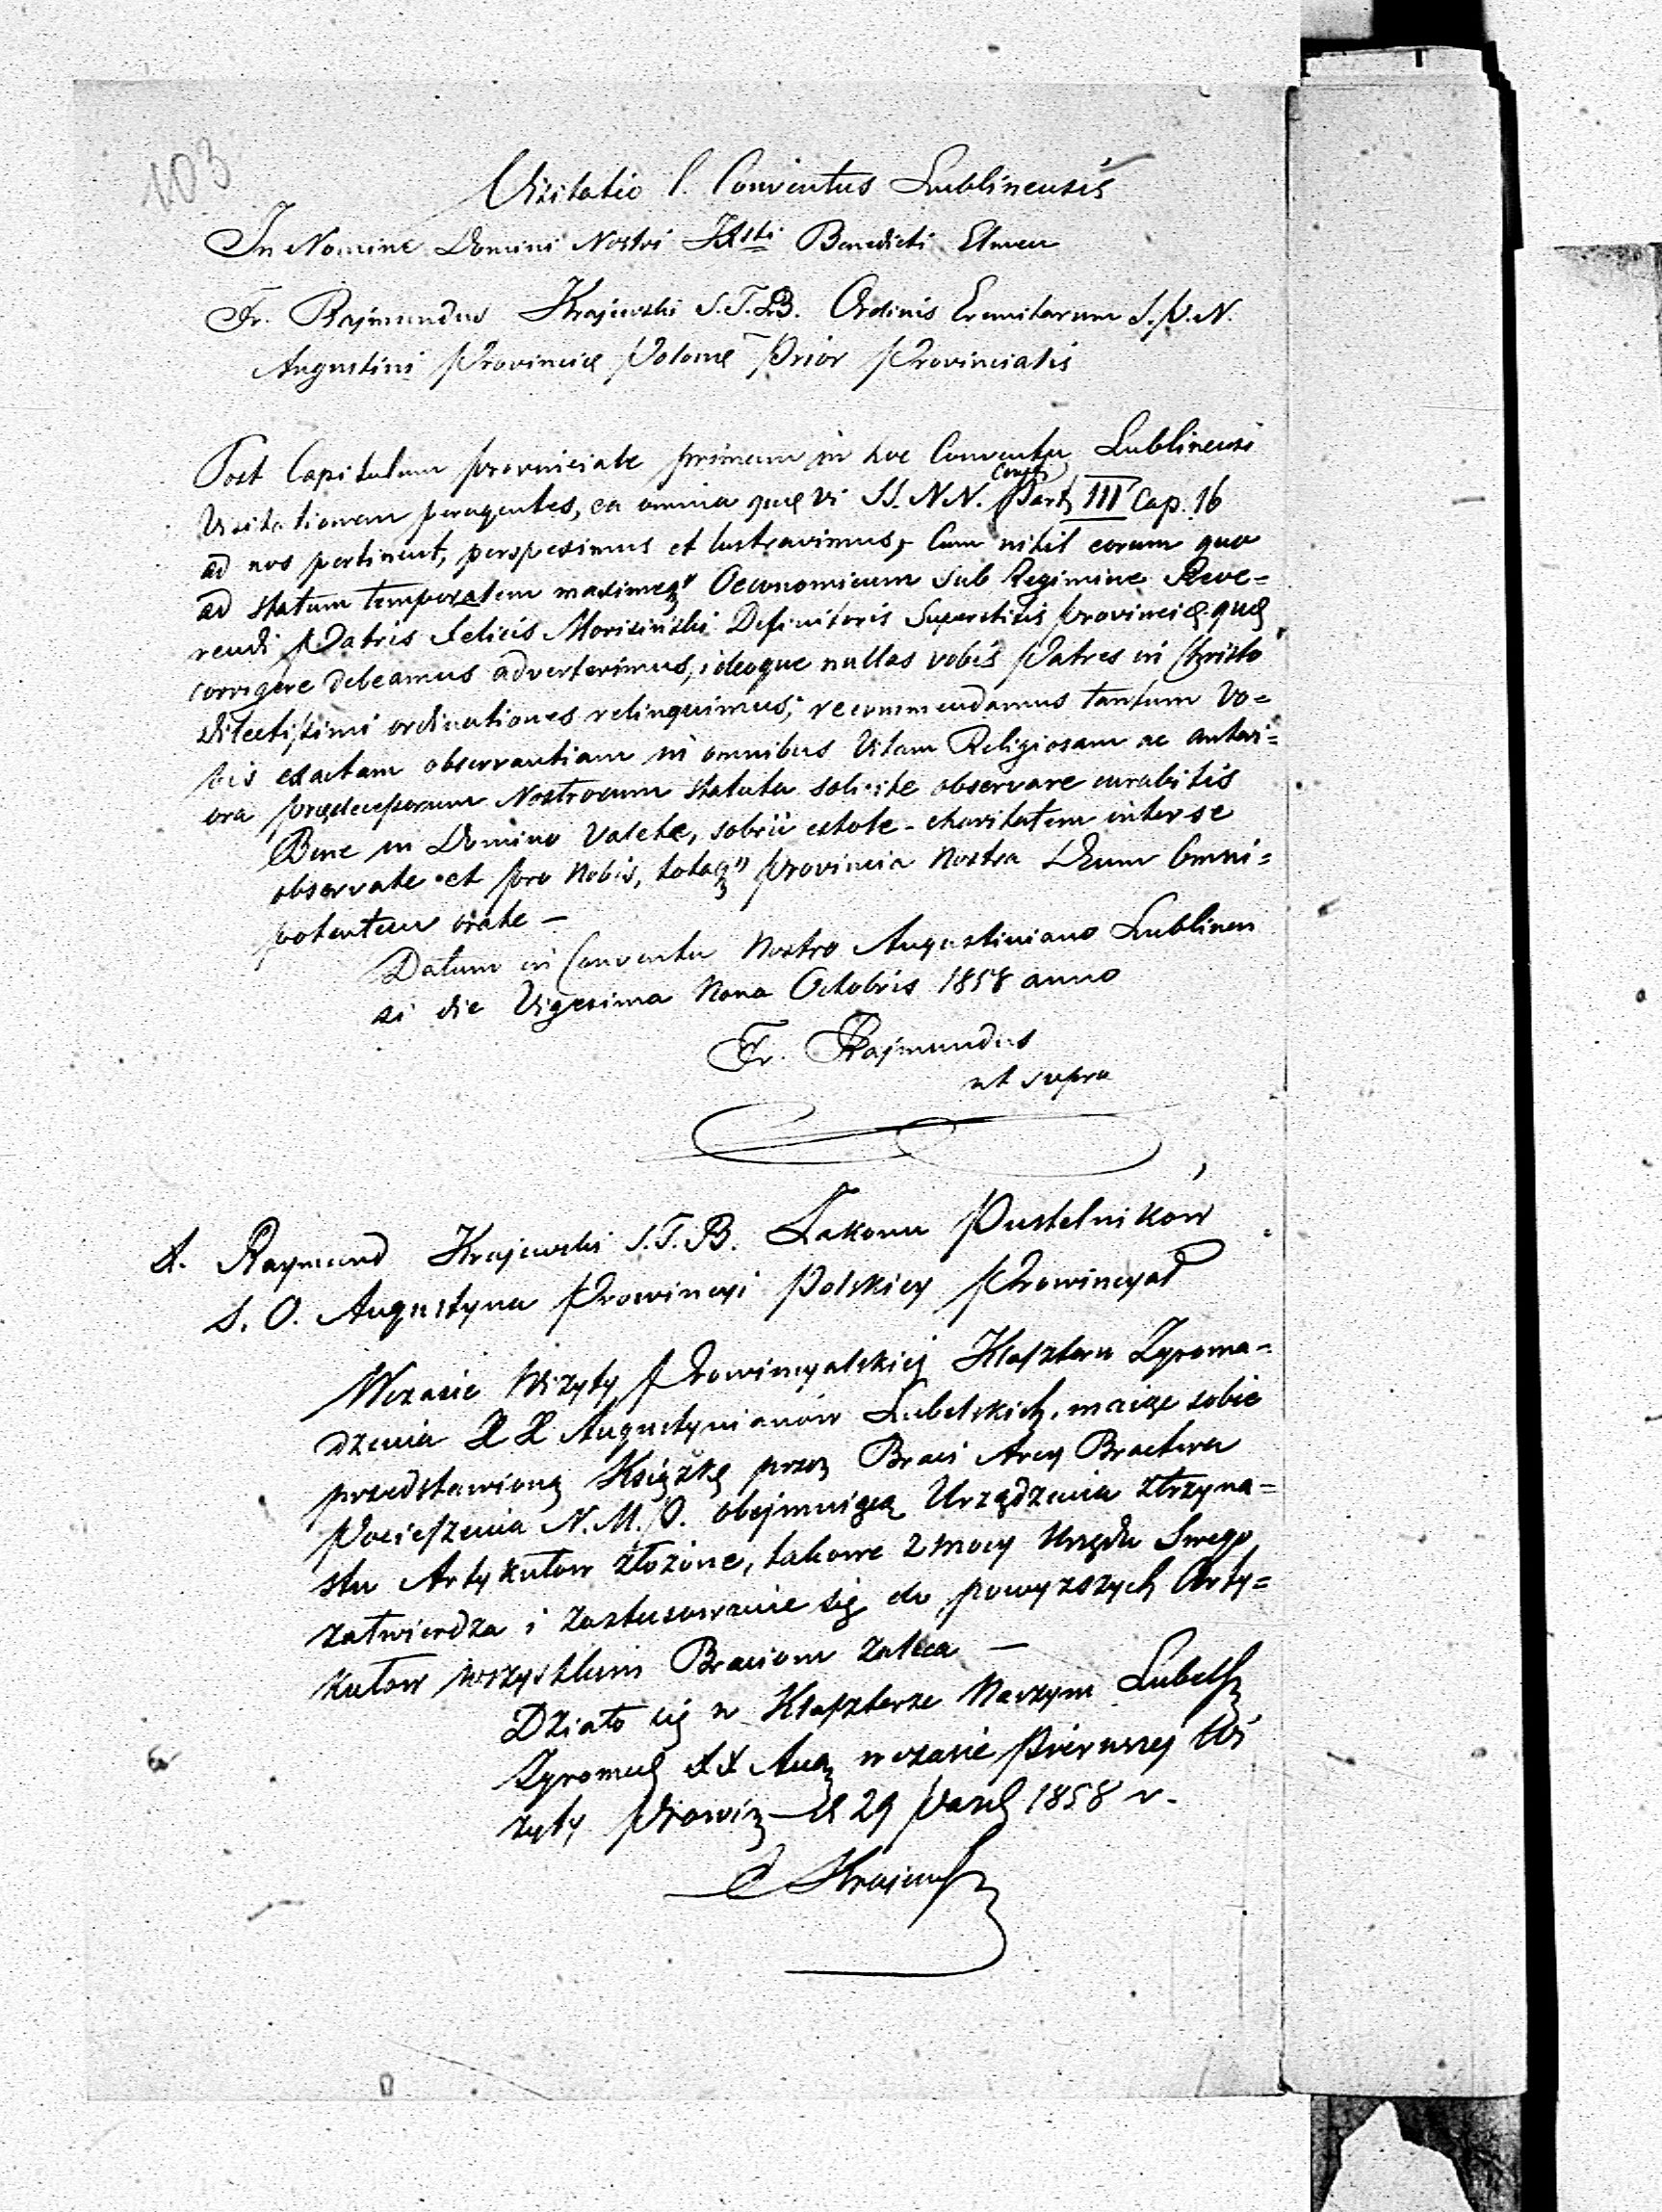 103
Visitatio l. Conventus Lublinensis
In Nomine Domini Nostri JXsti Benedicti Elmen
Fr. Rajmundus Krajewski S.T.B. Ordinis Eremitarum S.P.N.
Augustini Provinciæ Polonæ Prior Provincialis
Post Capitulum provinciale primum in hoc Conventu Lublinensi
Visitationem peragentes, ea omnia quæ vi SS. NN. Const. Part III Cap. 16
ad nos pertinent, perspeximus et lustravimus, Cum nihil eorum quo
ad statum temporalem maximeq Oeconomicum sub Regimine Reve=
rendi Patris Felicis Morisiński Definitoris Provinciæ quæ
corrigere debeamus adverterimus, ideoque nullas vobis Patres in Christo
dilectissimi ordinationes relinquimus; recommendamus tantum Vo=
bis exactam observantiam in omnibus Vitam Religiosam ac anteri=
ora prædecessorum Nostrorum statuta solicite observare curabitis
Bene in Domino Valete, sobrii estote - charitatem inter se
observate et pro Nobis, totaq provincia Nostra Deum Omni=
potentem orate -
Datum in Conventu Nostro Augustiniano Lublinen
si die Vigesima Nona Octobris 1858 anno
Fr. Rajmundus
ut supra
X. Raymund Krajewski S.T.B. Zakonu Pustelników
S. O. Augustyna Prowincyi Polskiey Prowincyał
Wczasie Wizyty Prowincyalskiej Klasztoru Zgroma-
dzenia XX Augustynianów Lubelskich, maiąc sobie
przedstawioną Książkę przez Braci Arcy Bractwa
Pocieszenia N.M.P. obejmuiącą Urządzenia ztrzyna=
stu Artykułow złożone, takowe z mocy Urzędu Swego
zatwierdza i zastosowanie się do powyzszych Arty=
kułow wszystkim Braciom zaleca —
Działo się w Klasztorze Naszym Lubel
Zgromad XX Aug wczasie Pierwszey Wi
zyty Prowin d 29 Pazd 1858 r.
Krajews